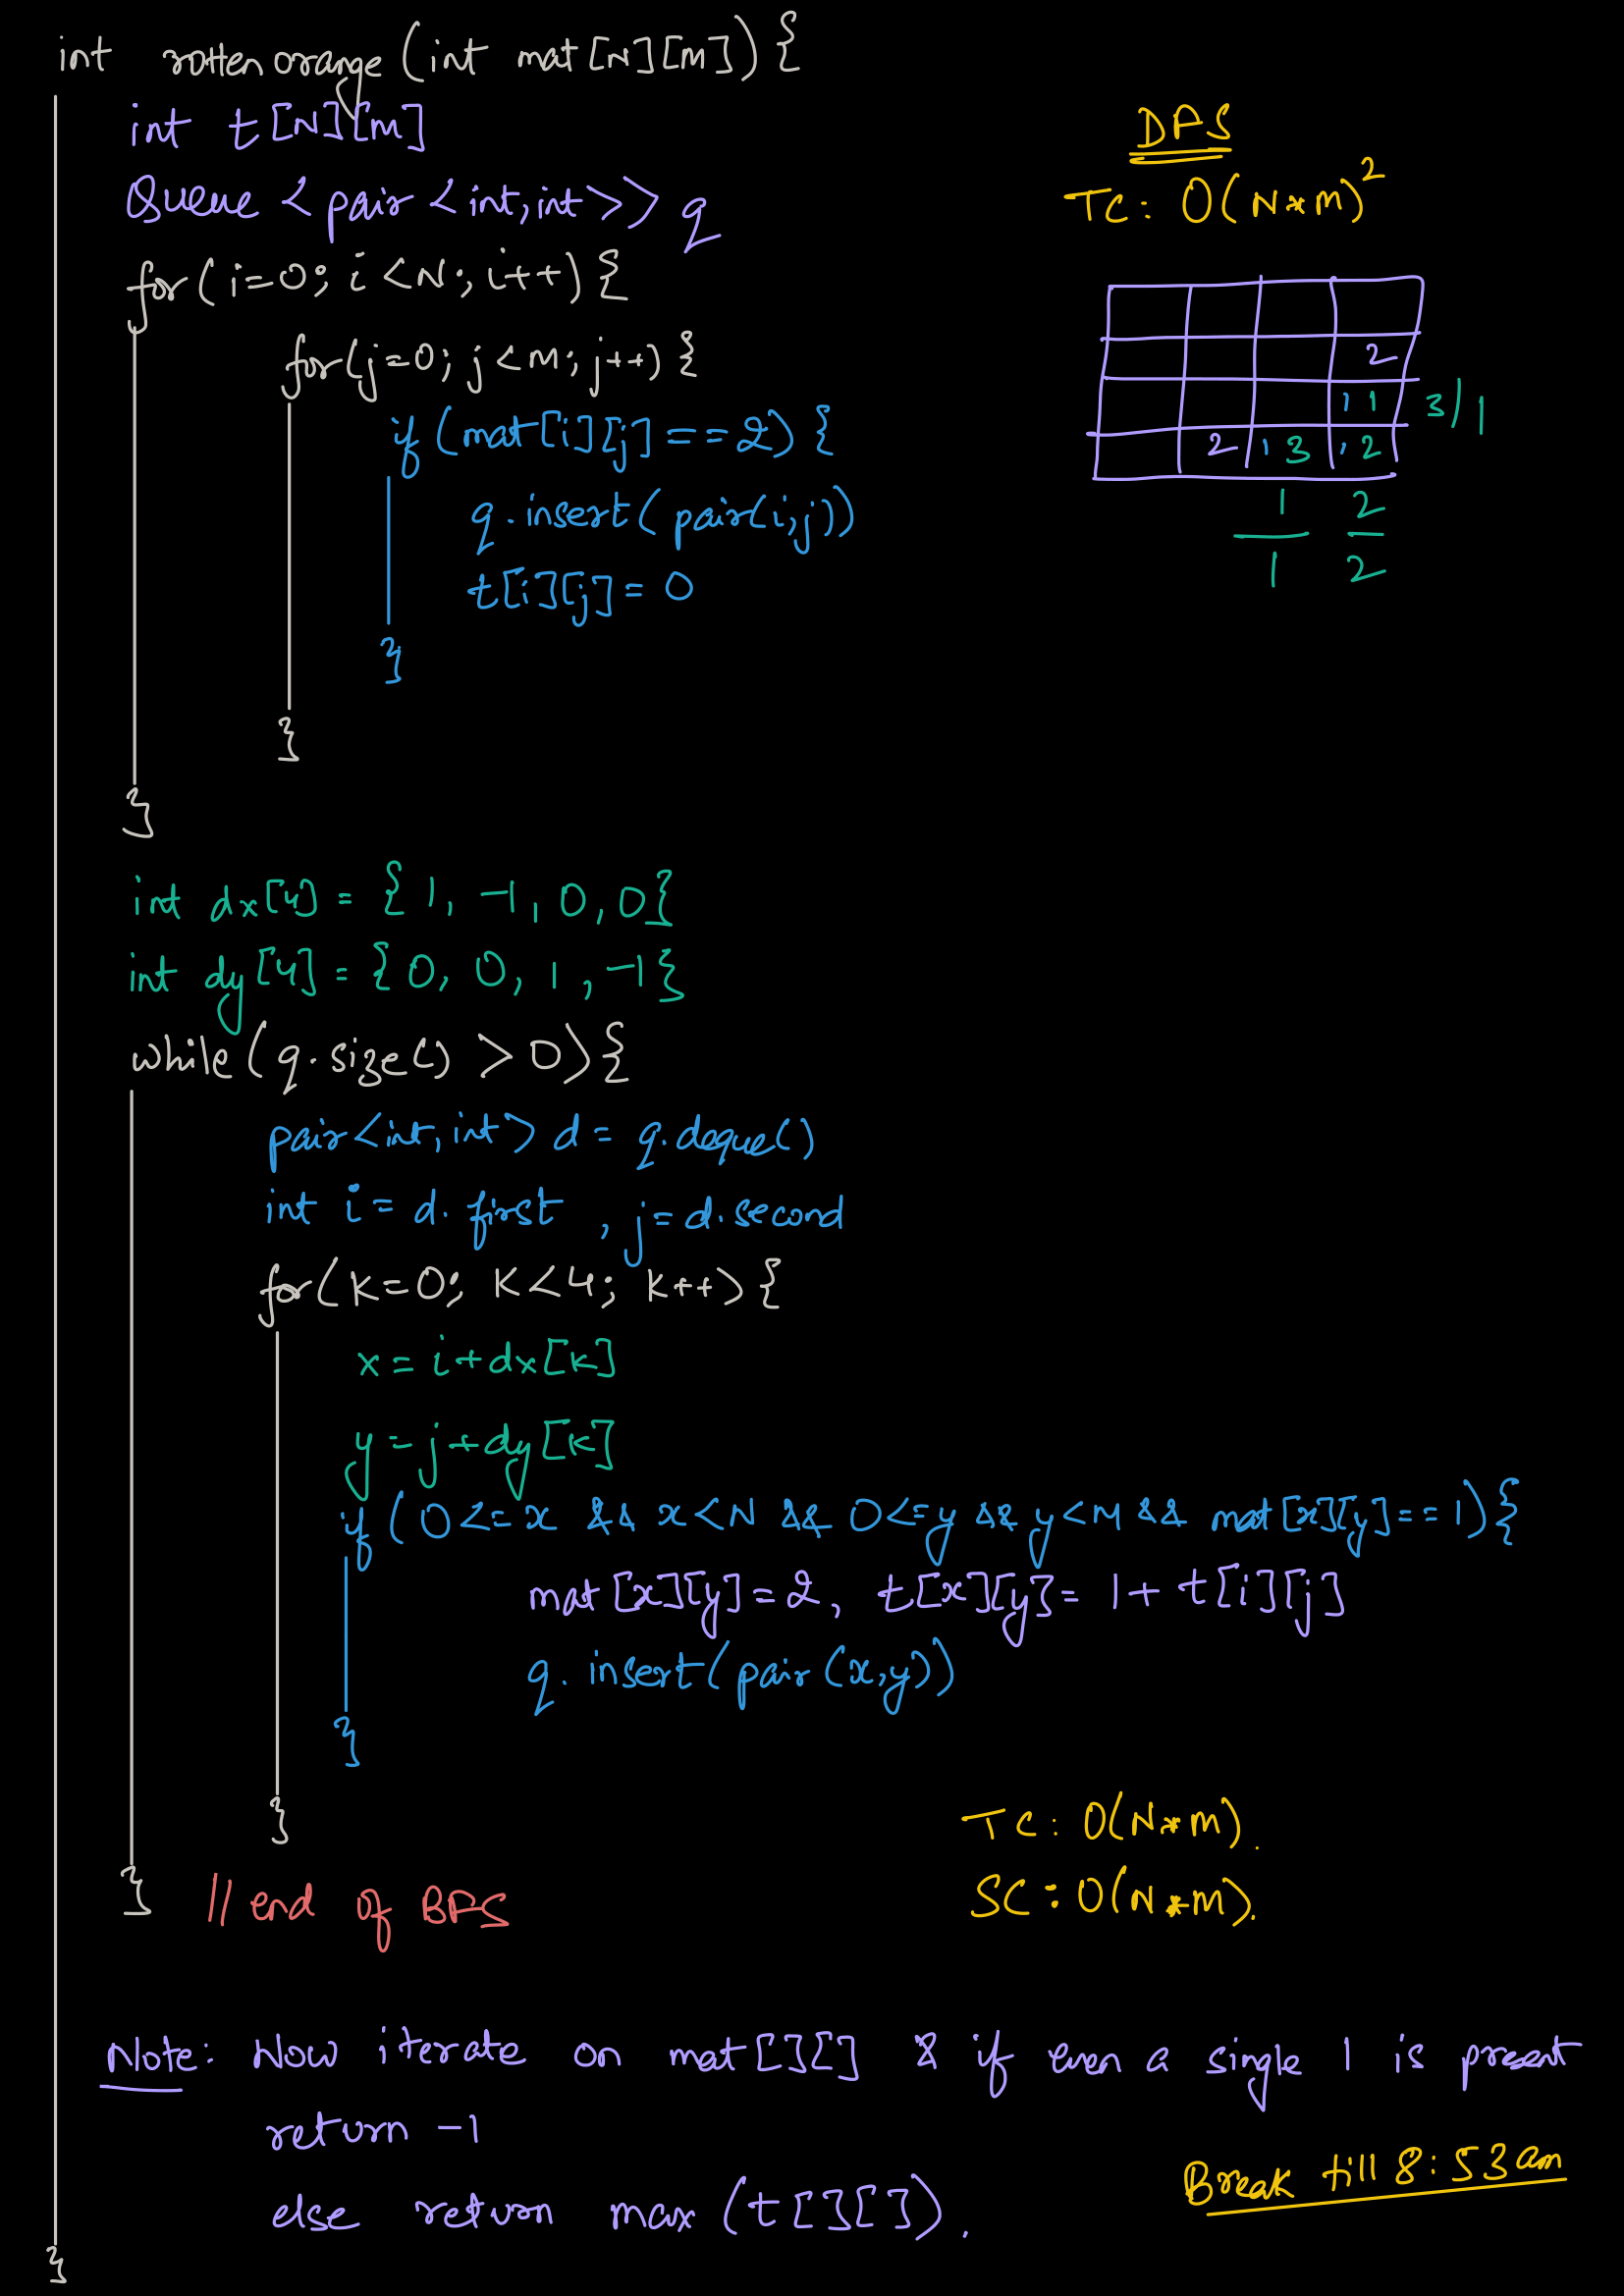 int rotten orange (int mat[N][M]) {
int t[N][M]
Queue < pair < int, int >> q
for (i=0; i<N; i++) {
for (j=0; j<M; j++) {
if (mat[i][j]==2) {
q.insert( pair(i,j))
t[i][j]= 0
}
}
}
DFS
TC: O(N*M)²
2
1 1 3/1
2 1 3 1 2
1 2
1 2
int dx[4] = {1, -1, 0, 0}
int dy[4] = {0, 0, 1, -1}
while (q.size() > 0) {
pair<int, int> d = q.deque()
int i = d.first , j = d.second
for (k=0; k<4; k++) {
x = i+dx[k]
y = j+dy[k]
if (0<=x && x<N && 0<=y && y<M && mat[x][y]==1) {
mat[x][y]=2, t[x][y]= 1+ t[i][j]
q. insert( pair (x,y))
}
}
} // end of BFS
TC: O(N*M).
SC: O(N*M).
Note: Now iterate on mat[][] & if even a single 1 is present
return -1
else return max (t[][]).
Break till 8:53 am
}